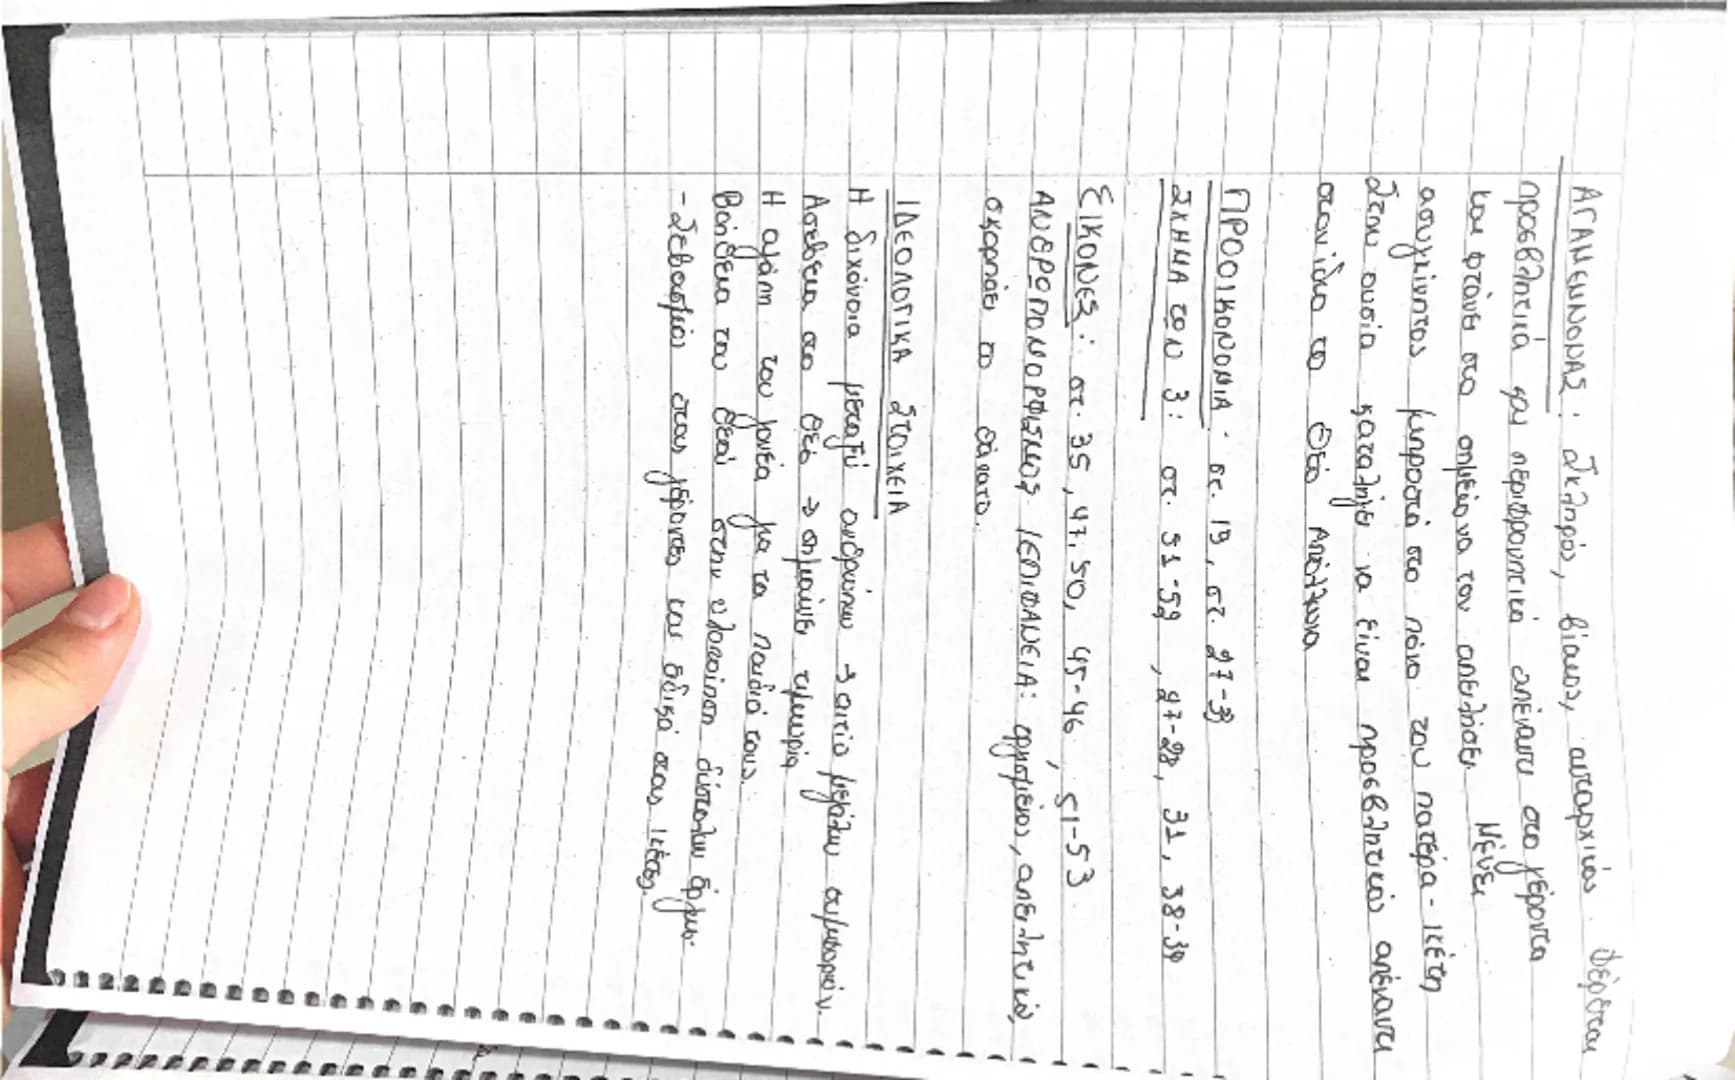 ΑΓΑΜΕΜΝΟΝΑΣ: Σκληρός, βίαιος, αυταρχικός. Φέρεται
προσβλητικά και περιφρονητικά απέναντι στο γέροντα
και φτάνει στο σημείο να τον απειλήσει. Μένει
ασυγκίνητος μπροστά στο πόνο του πατέρα-ικέτη
Στην ουσία καταλήγει να είναι προσβλητικός απέναντι
στον ίδιο το θεό Απόλλωνα
ΠΡΟΟΙΚΟΝΟΜΙΑ: στ. 19, στ. 27-33
ΣΧΗΜΑ των 3: στ. 51-59, 27-28, 31, 38-39
ΕΙΚΟΝΕΣ: στ. 35, 47, 50, 45-46, 51-53
ΑΝΘΡΩΠΟΜΟΡΦΙΣΜΟΣ. ΙΕΠΙΦΑΝΕΙΑ: οργισμένος, απειλητικός,
σκορπάει το θάνατο.
ΙΔΕΟΛΟΓΙΚΑ ΣΤΟΙΧΕΙΑ
Η διχόνοια μεταξύ ανθρώπων → αιτία μεγάλων συμφορών.
Ασέβεια στο θεό → σημαίνει τιμωρία
Η αγάπη του γονέα για τα παιδιά τους.
Βοήθεια του θεού στην υλοποίηση δύσκολων
- Σεβασμός στους γέροντες και ειδικά στους ικέτες.